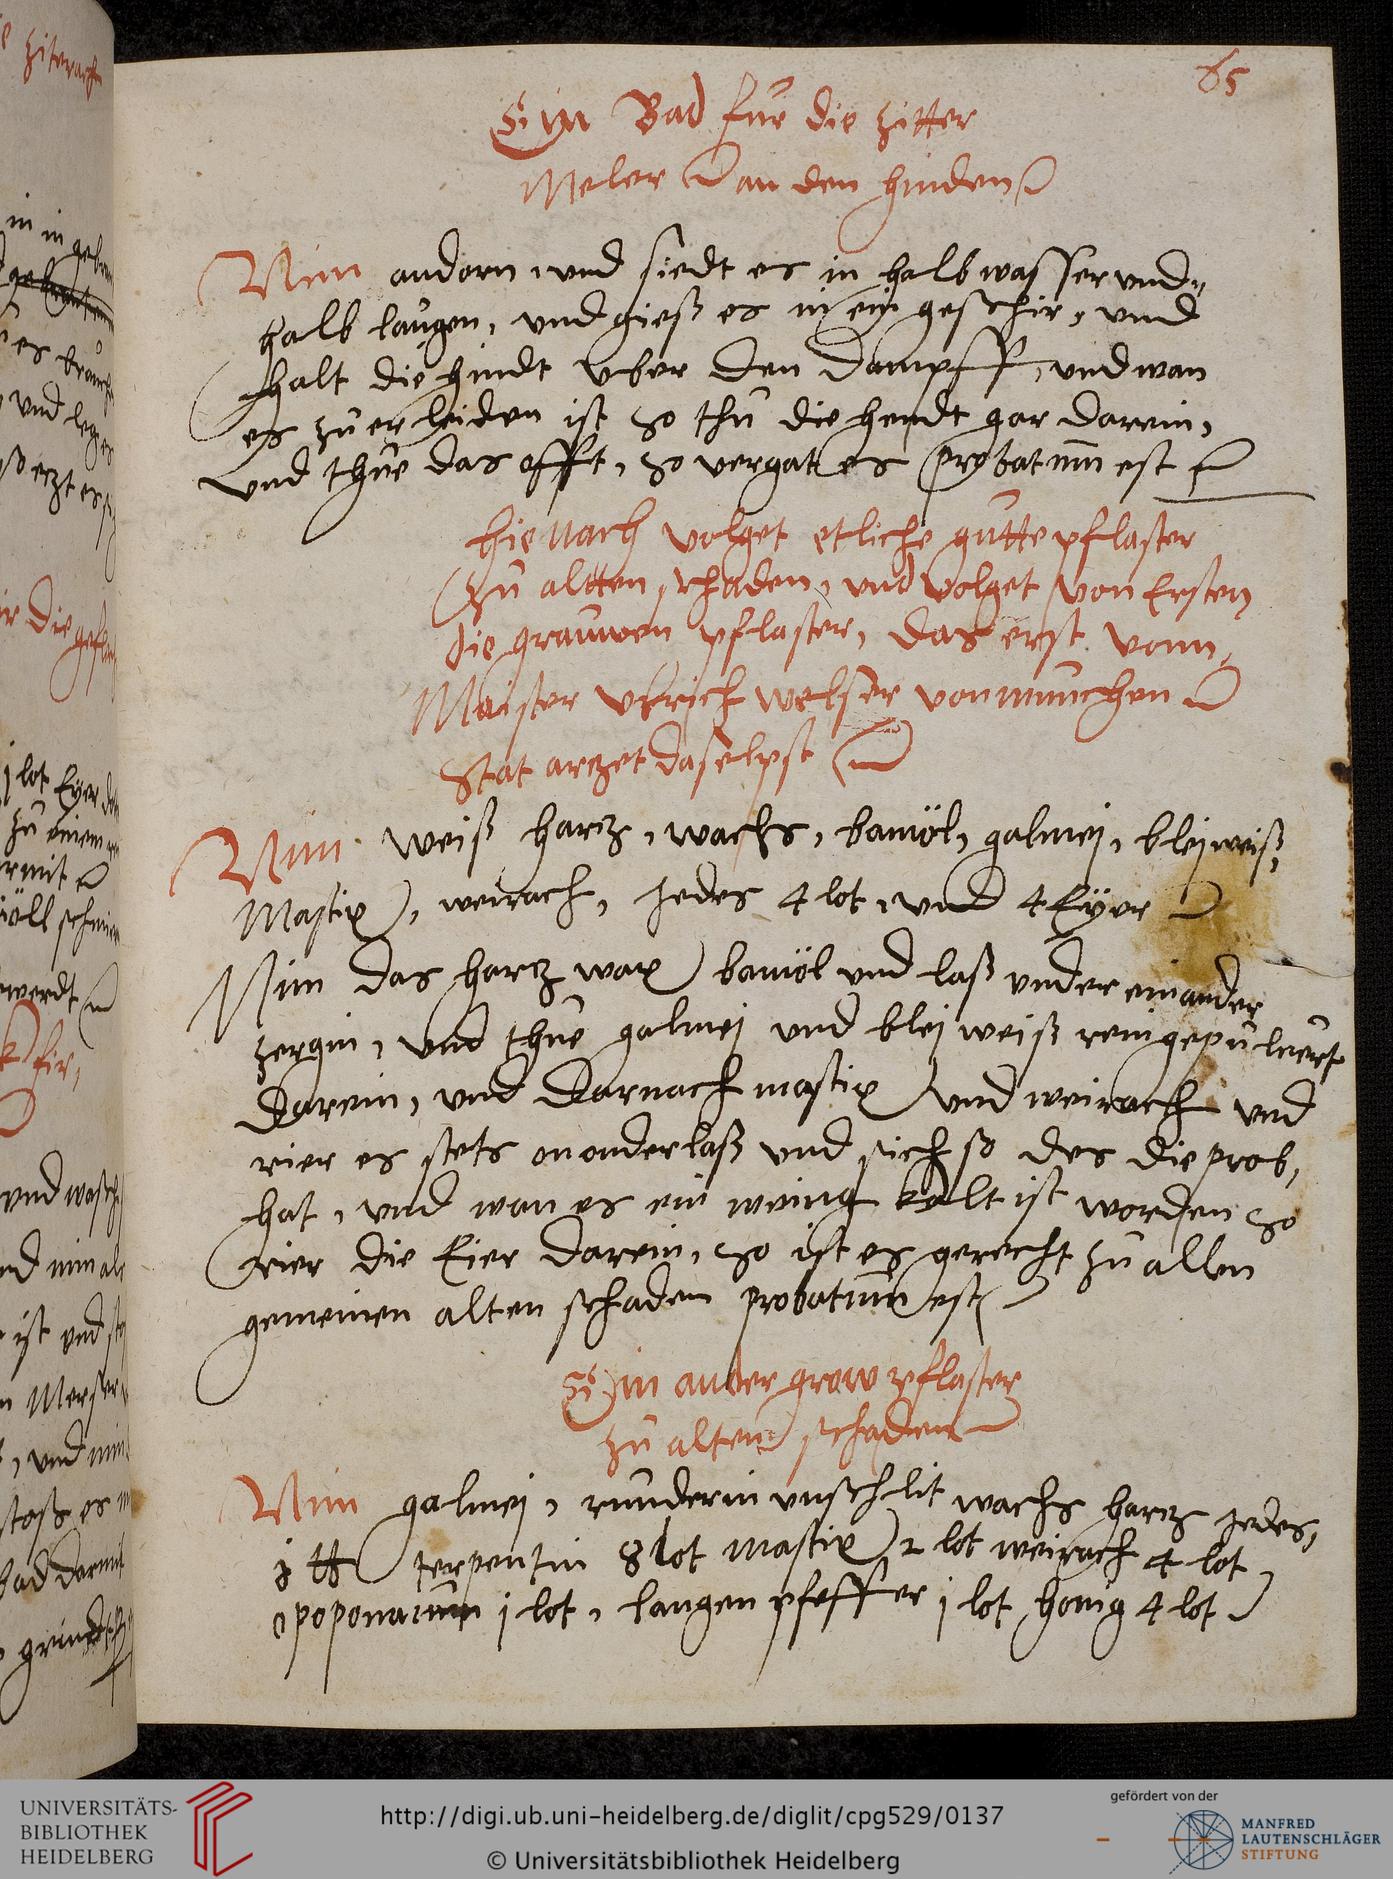 65
Ein Bad fur die zitter
Meler an den hinden
Nim andorn, und siedt es in halb wasser und
halb laugen, und gieß es in ein geschir, und
halt die hindt vber den dampff, und wan
es zu erleiden ist so thu die hendt gar darein,
und thue das offt, so vergat es probatum est
Hienach volget etliche gutte pflaster
zu altten schaden, und volget von Ersten
die grauwen pflaster, das erst vonn
Maister Vlrich welser von munchen
Stat arczet daselpst
Nim weiß harcz, wachs, bamöl, galmej, blejweiß,
Mastix, weirach, jedes 4 lot, und 4 Eyer
Nim das harcz wax bamöl und laß under einander
zergin, und thue galmej und blej weiß rein gepuluert
darein, und darnach mastix und weirach und
rier es stets on onderlaß und sich so des die prob,
hat, und wan es ein wenig kalt ist worden so
rier die Eier darein, so ist es gerecht zu allen
gemeinen alten schaden probatum est
Ein ander grow pflaster
zu alten schaden
Nim galmej, runderin unschlit wachs harcz jedes,
j ℔ terpentin 8 lot mastix 2 lot weirach 4 lot
opoponacum j lot, langen pfeffer j lot honig 4 lot
UNIVERSITÄTS-
BIBLIOTHEK
HEIDELBERG
http://digi.ub.uni-heidelberg.de/diglit/cpg529/0137
© Universitätsbibliothek Heidelberg
gefördert von der
MANFRED
LAUTENSCHLÄGER
STIFTUNG